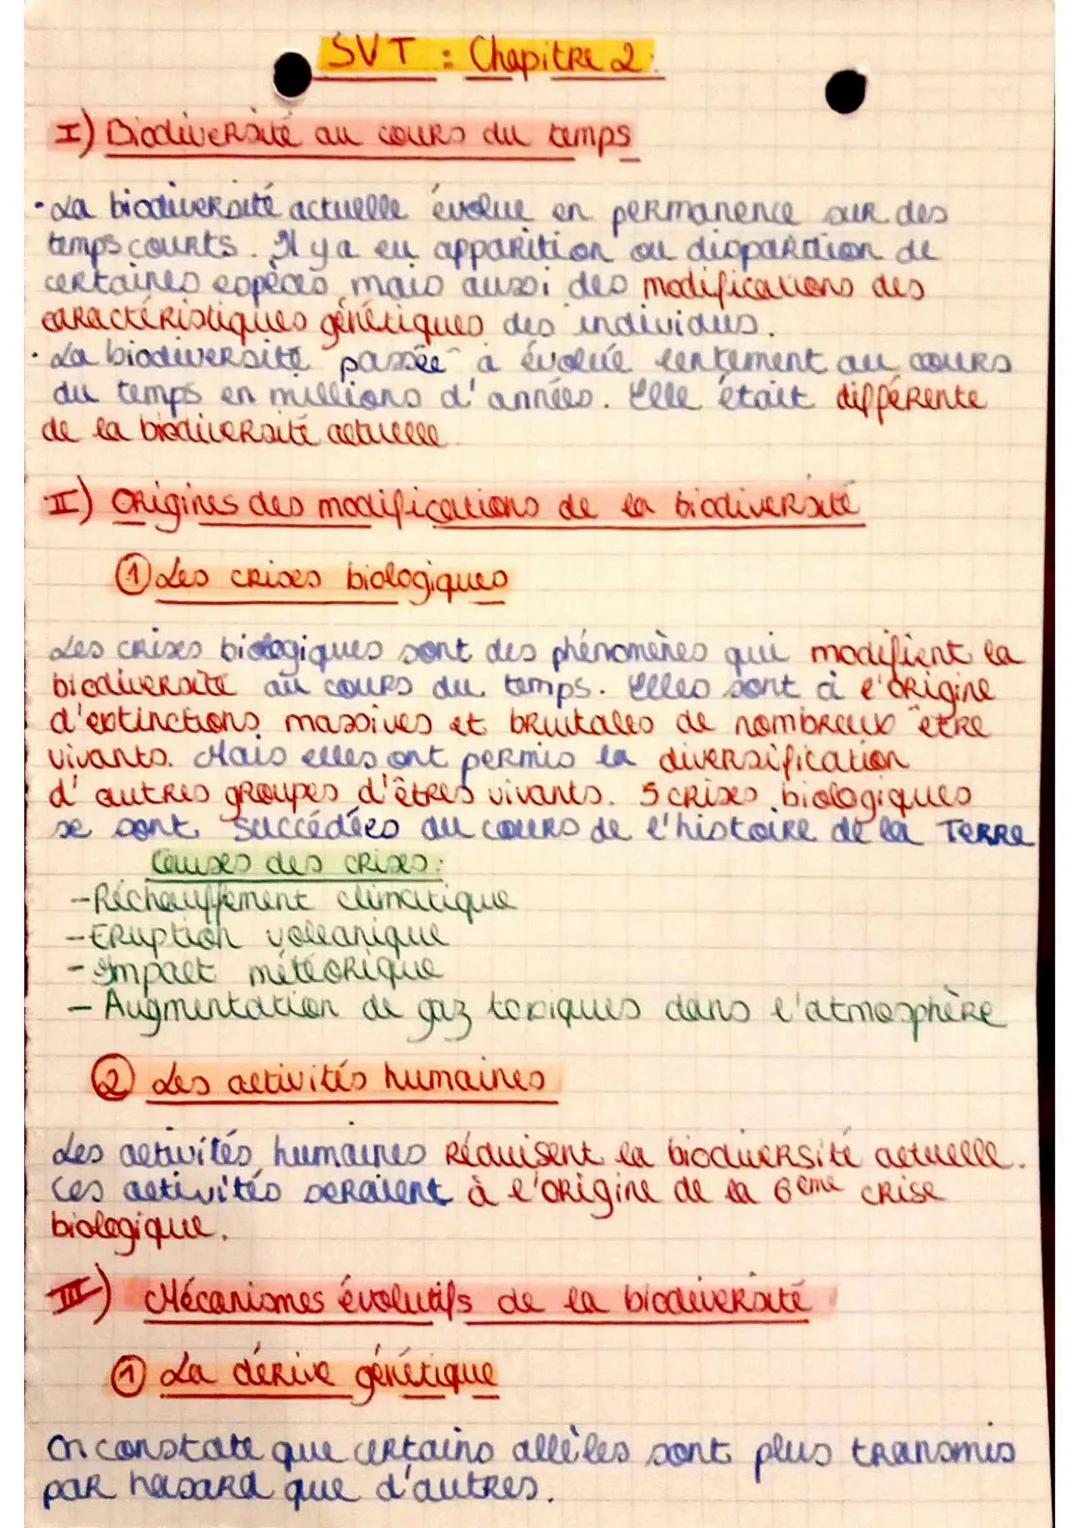 SVT : Chapitre 2:
I) Biodiversité au cours du temps
· La biodiversité actuelle évolue en permanence sur des
temps courts. Il y a eu apparition ou disparition de
certaines espèces mais aussi des modifications des
caractéristiques génétiques des individus.
· La biodiversité passée a évolué lentement au cours
du temps en millions d'années. Elle était différente
de la biodiversité actuelle
II) Origines des modifications de la biodiversité
① Les crises biologiques
Les crises biologiques sont des phénomènes qui modifient la
biodiversité au cours du temps. Elles sont à l'origine
d'extinctions massives et brutales de nombreux être
vivants. Mais elles ont permis la diversification
d'autres groupes d'êtres vivants. 5 crises biologiques
se sont succédées au cours de l'histoire de la Terre
Causes des crises:
- Réchauffement climatique
- Eruption volcanique
- Impact météorique
- Augmentation de gaz toxiques dans l'atmosphère
② Les activités humaines
Les activités humaines réduisent la biodiversité actuelle.
Ces activités seraient à l'origine de la 6ème crise
biologique.
III) Mécanismes évolutifs de la biodiversité
① La dérive génétique
On constate que certains allèles sont plus transmis
par hasard que d'autres.